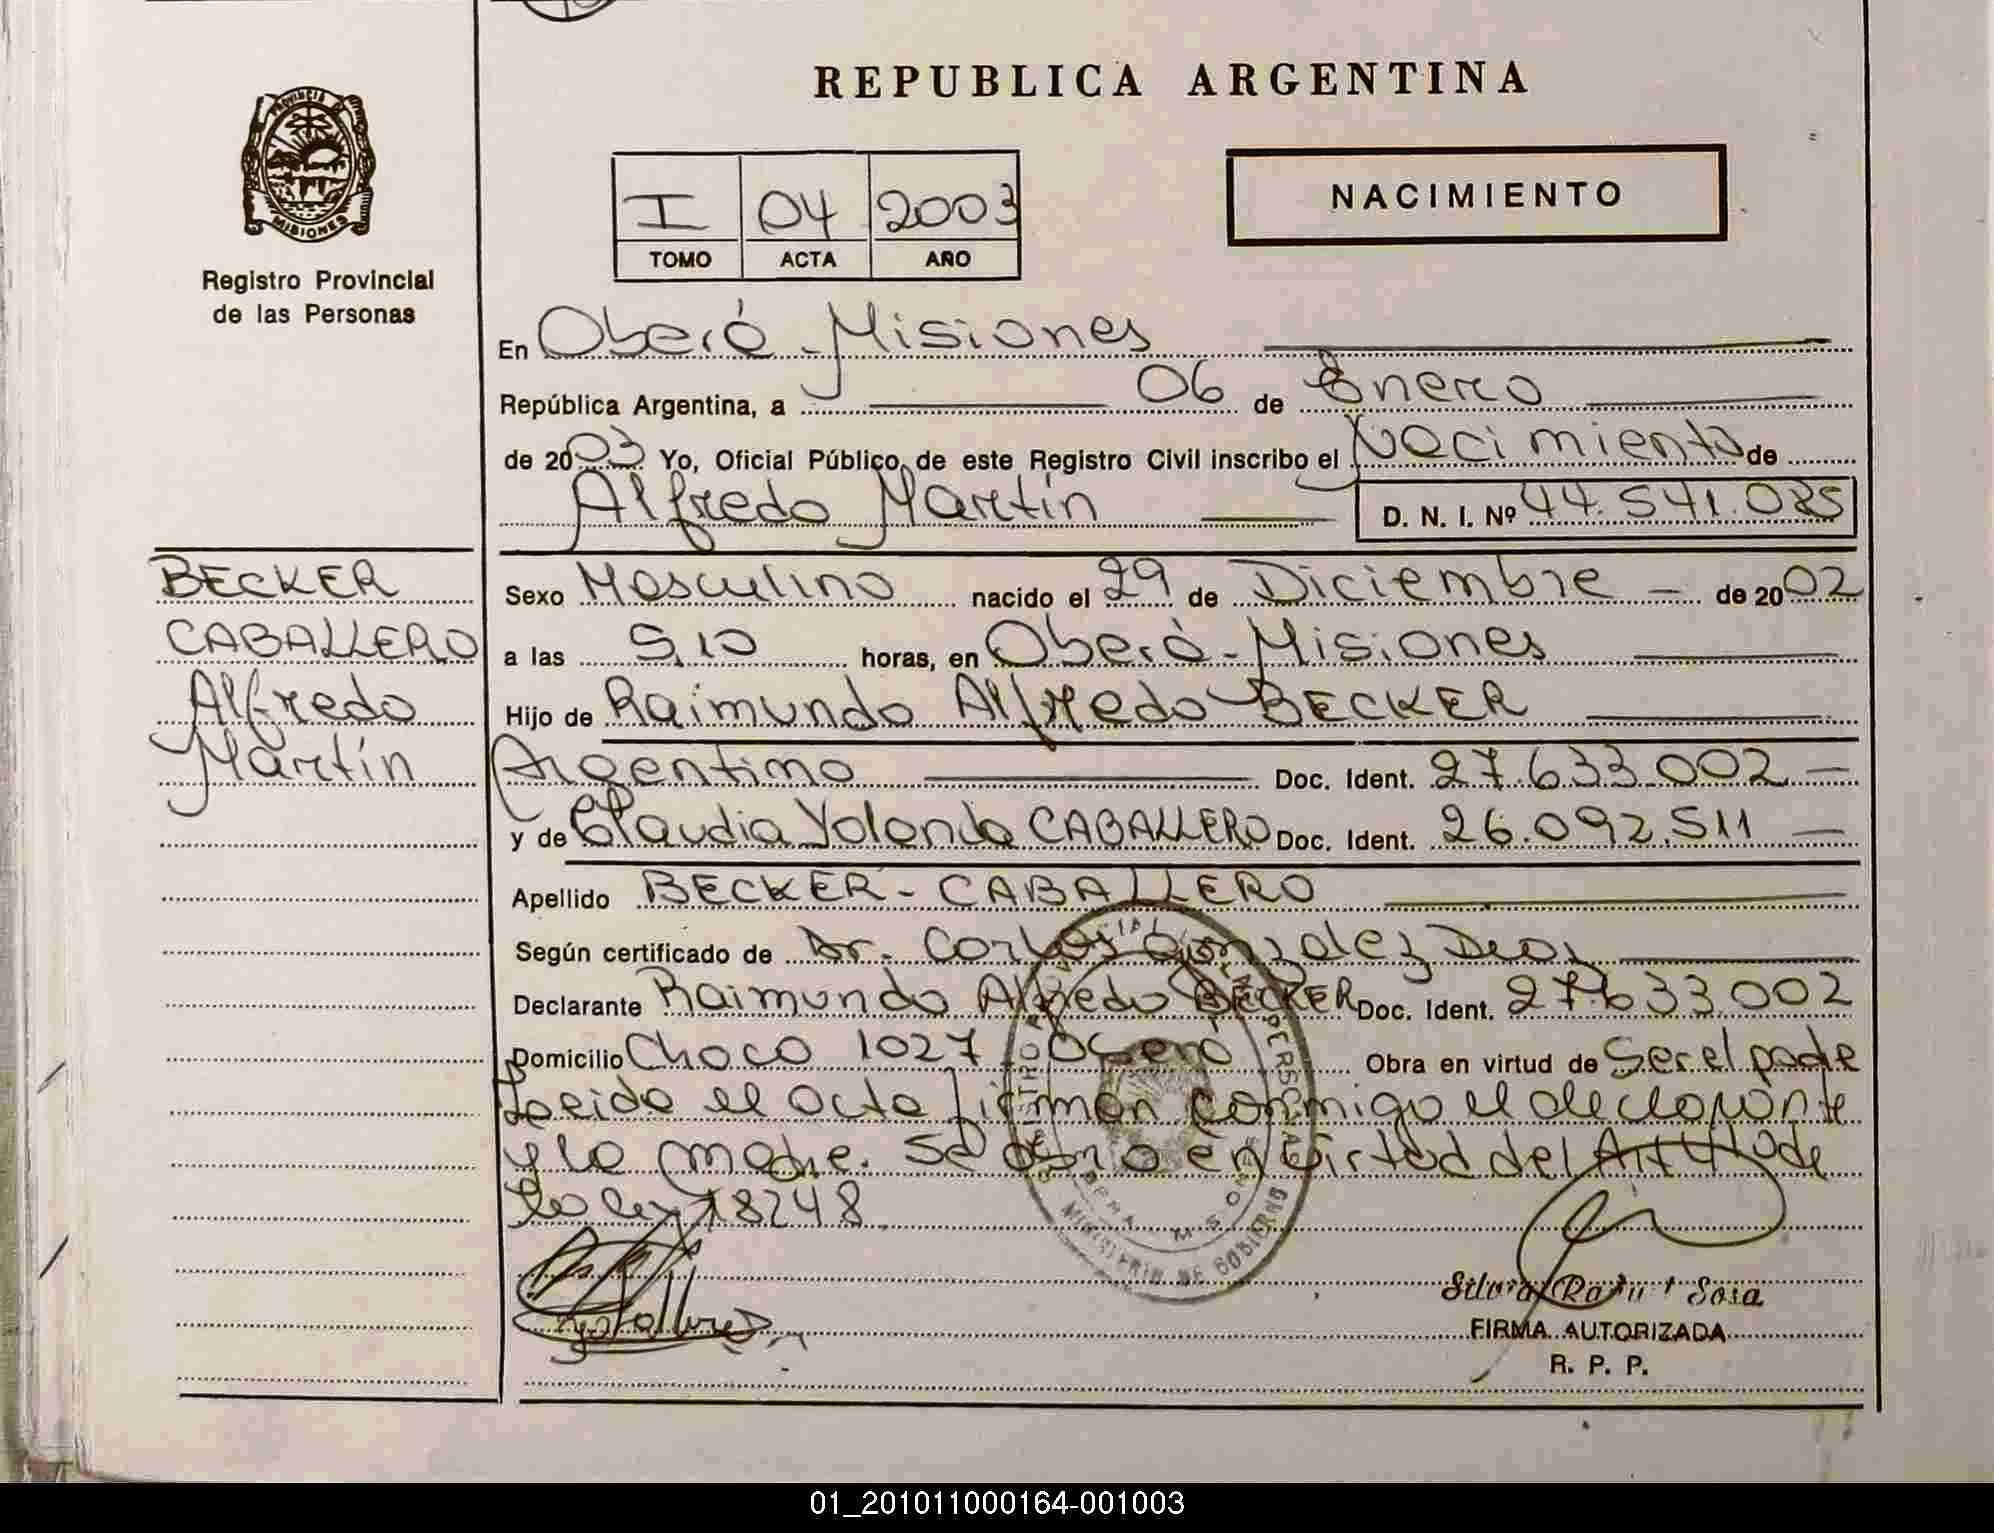 REPUBLICA ARGENTINA
PROVINCIA DE
MISIONES
Registro Provincial
de las Personas
I 04 2003
TOMO ACTA AÑO
NACIMIENTO
En Oberá - Misiones
República Argentina, a 06 de Enero
de 2003 Yo, Oficial Público de este Registro Civil inscribo el Nacimiento de
Alfredo Martín D. N. I. Nº 44.541.035
BECKER
CABALLERO
Alfredo
Martín
Sexo Masculino nacido el 29 de Diciembre - de 2002
a las 5,10 horas, en Oberá - Misiones
Hijo de Raimundo Alfredo BECKER
Argentino Doc. Ident. 27.633.002 -
y de Claudia Yolanda CABALLERO Doc. Ident. 26.092.511 -
Apellido BECKER - CABALLERO
Según certificado de Dr. Carlos González
Declarante Raimundo Alfredo BECKER Doc. Ident. 27.633.002
Domicilio Chaco 1027 Oberá Obra en virtud de Ser el padre
Leida el acta firman conmigo el declarante
y la madre. Se en virtud del Art 4to de
la ley 18248
MINISTERIO DE GOBIERNO
Silvia Sosa
FIRMA AUTORIZADA
R. P. P.
01_201011000164-001003